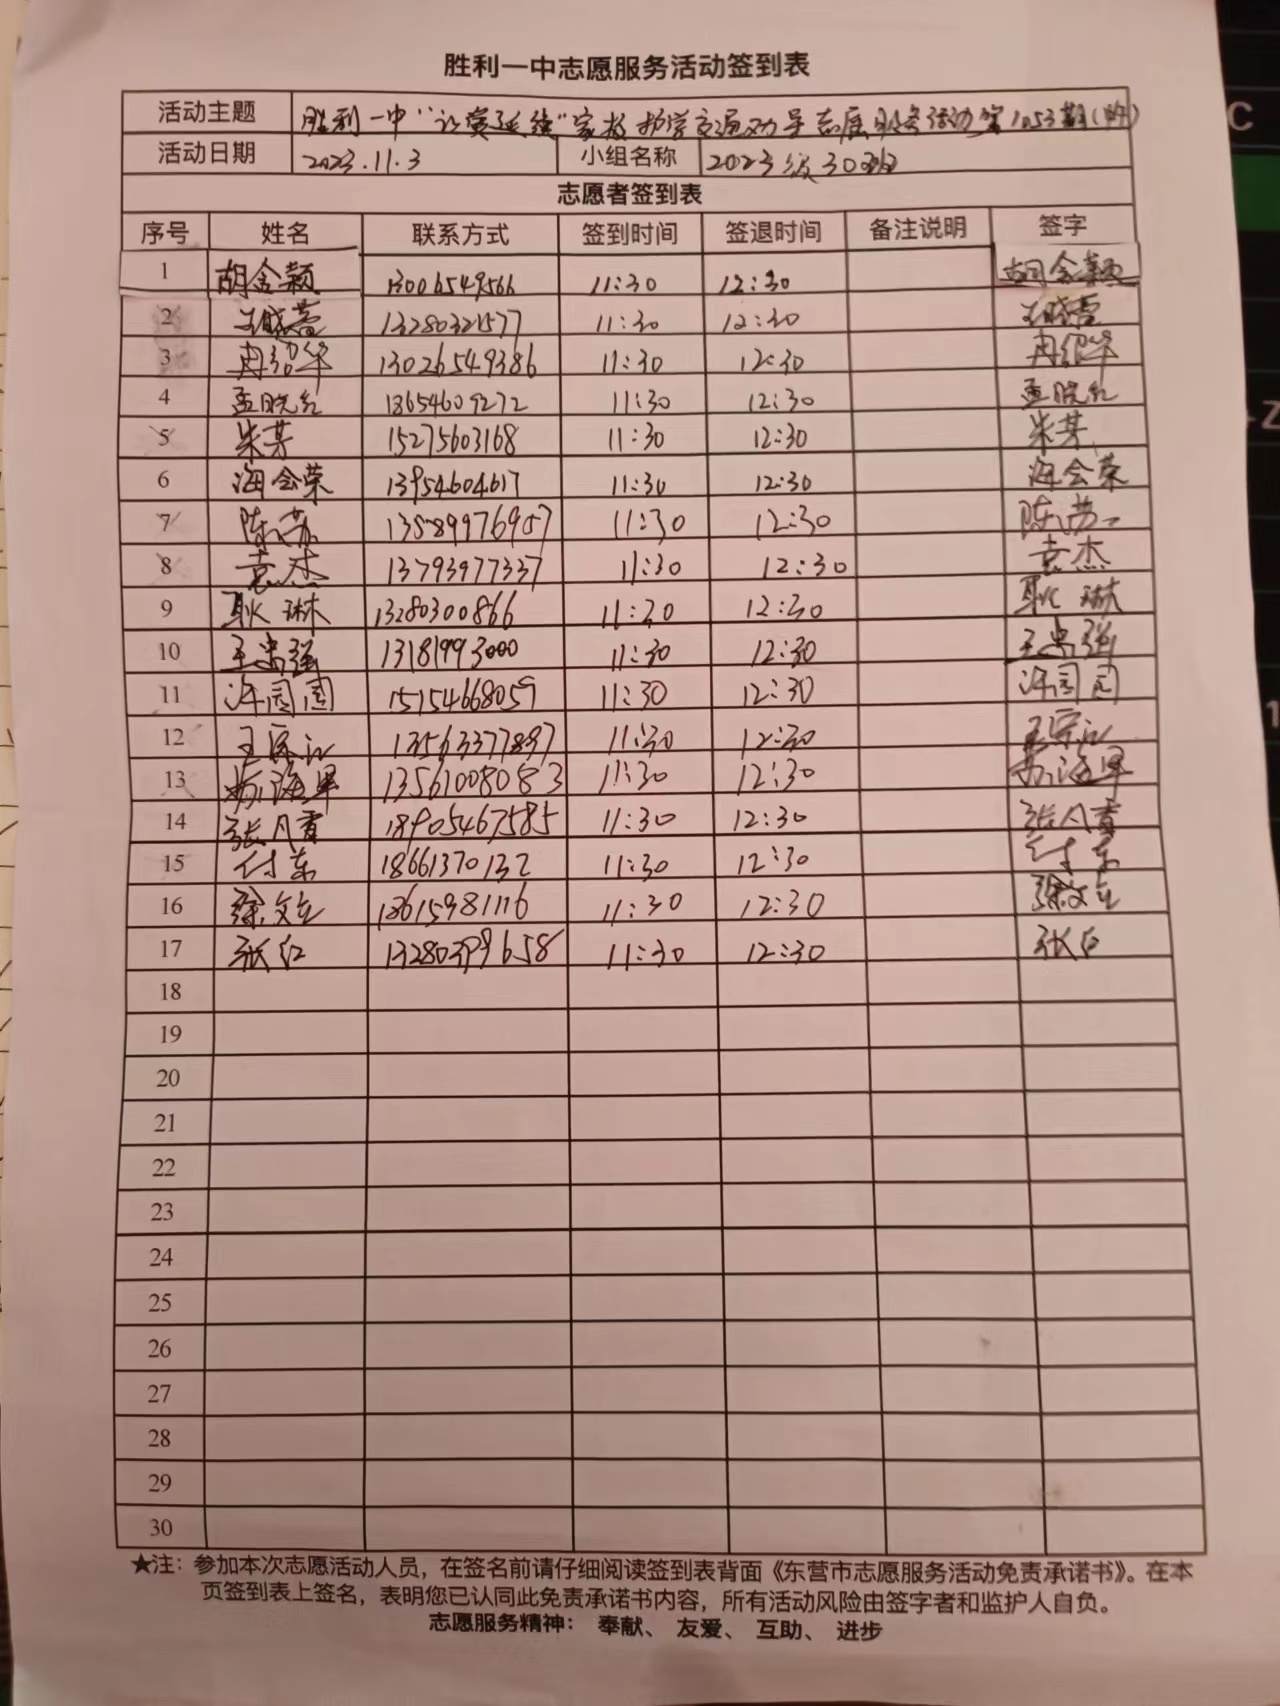 胜利一中志愿服务活动签到表
活动主题 胜利一中“让赏延续”家校护学交通劝导志愿服务活动第1053期(附)
活动日期 2023.11.3 小组名称 2023级30班
志愿者签到表
序号 姓名 联系方式 签到时间 签退时间 备注说明 签字
1 胡金颖 13006549566 11:30 12:30 胡金颖
2 13280321577 11:30 12:30
3 冉绍华 13026549386 11:30 12:30 冉绍华
4 孟晓红 18654609272 11:30 12:30 孟晓红
5 朱芳 15275603168 11:30 12:30 朱芳
6 海会荣 13954604617 11:30 12:30 海会荣
7 陈苏 13589976957 11:30 12:30 陈苏
8 袁杰 13793977337 11:30 12:30 袁杰
9 耿琳 13280300866 11:30 12:30 耿琳
10 王忠强 13181993000 11:30 12:30 王忠强
11 许园园 15154668059 11:30 12:30 许园园
12 13563377897 11:30 12:30
13 13561008083 11:30 12:30
14 张凡霞 18905467585 11:30 12:30 张凡霞
15 付东 18661370132 11:30 12:30 付东
16 徐文立 18615981116 11:30 12:30 徐文立
17 张红 13280399658 11:30 12:30 张红
18
19
20
21
22
23
24
25
26
27
28
29
30
★注：参加本次志愿活动人员，在签名前请仔细阅读签到表背面《东营市志愿服务活动免责承诺书》。在本
页签到表上签名，表明您已认同此免责承诺书内容，所有活动风险由签字者和监护人自负。
志愿服务精神： 奉献、 友爱、 互助、 进步